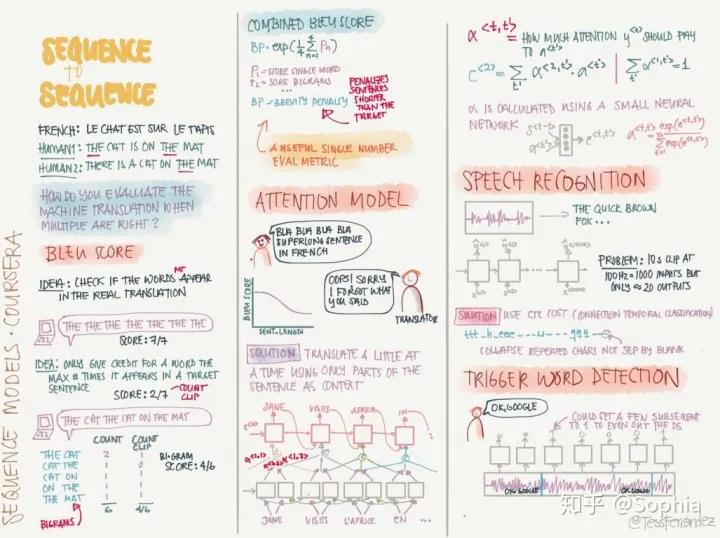 SEQUENCE MODELS · COURSERA
SEQUENCE
to
SEQUENCE
FRENCH: LE CHAT EST SUR LE TAPIS
HUMAN1: THE CAT IS ON THE MAT
HUMAN2: THERE IS A CAT ON THE MAT
HOW DO YOU EVALUATE THE
MACHINE TRANSLATION WHEN
MULTIPLE ARE RIGHT?
BLEU SCORE
IDEA: CHECK IF THE WORDS MT APPEAR
IN THE REAL TRANSLATION
THE THE THE THE THE THE THE
SCORE: 7/7
IDEA: ONLY GIVE CREDIT FOR A WORD THE
MAX # TIMES IT APPEARS IN A TARGET
SENTENCE
SCORE: 2/7
COUNT
CLIP
THE CAT THE CAT ON THE MAT
COUNT COUNT CLIP
THE CAT 2 1
CAT THE 1 0
CAT ON 1 1
ON THE 1 1
THE MAT 1 1
6 4/6
BIGRAM
SCORE: 4/6
BIGRAMS
COMBINED BLEU SCORE
BP · exp(1/4 Σ Pn)
P1 = SCORE SINGLE WORD
P2 = SCORE BIGRAMS
...
BP = BREVITY PENALTY
PENALIZES
SENTENCES
SHORTER
THAN THE
TARGET
A USEFUL SINGLE NUMBER
EVAL METRIC
ATTENTION MODEL
BLA BLA BLA BLA
SUPERLONG SENTENCE
IN FRENCH
BLEU SCORE
SENT. LENGTH
OOPS! SORRY
I FORGOT WHAT
YOU SAID
TRANSLATOR
SOLUTION TRANSLATE A LITTLE AT
A TIME USING ONLY PARTS OF THE
SENTENCE AS CONTEXT
JANE VISITS AFRICA IN ...
JANE VISITS L'AFRICE EN ...
α<t,t'> = HOW MUCH ATTENTION y<t> SHOULD PAY
TO a<t'>
c<2> = Σt' α<2,t'> · a<t'> | Σt' α<1,t'> = 1
α IS CALCULATED USING A SMALL NEURAL
NETWORK
s<t-1>
a<t'>
e<t,t'>
α<t,t'> = exp(e<t,t'>) / Σ exp(e<t,t'>)
SPEECH RECOGNITION
THE QUICK BROWN
FOX...
PROBLEM: 10s CLIP AT
100HZ = 1000 INPUTS BUT
ONLY ≈ 20 OUTPUTS
SOLUTION USE CTC COST (CONNECTION TEMPORAL CLASSIFICATION)
COLLAPSE REPEATED CHARS NOT SEP BY BLANK
TRIGGER WORD DETECTION
OK, GOOGLE
COULD SET A FEW SUBSEQUENT
TO 1 TO EVEN OUT THE DS
OK GOOGLE OK GOOGLE
知乎 @Sophia
@TessFerrandez